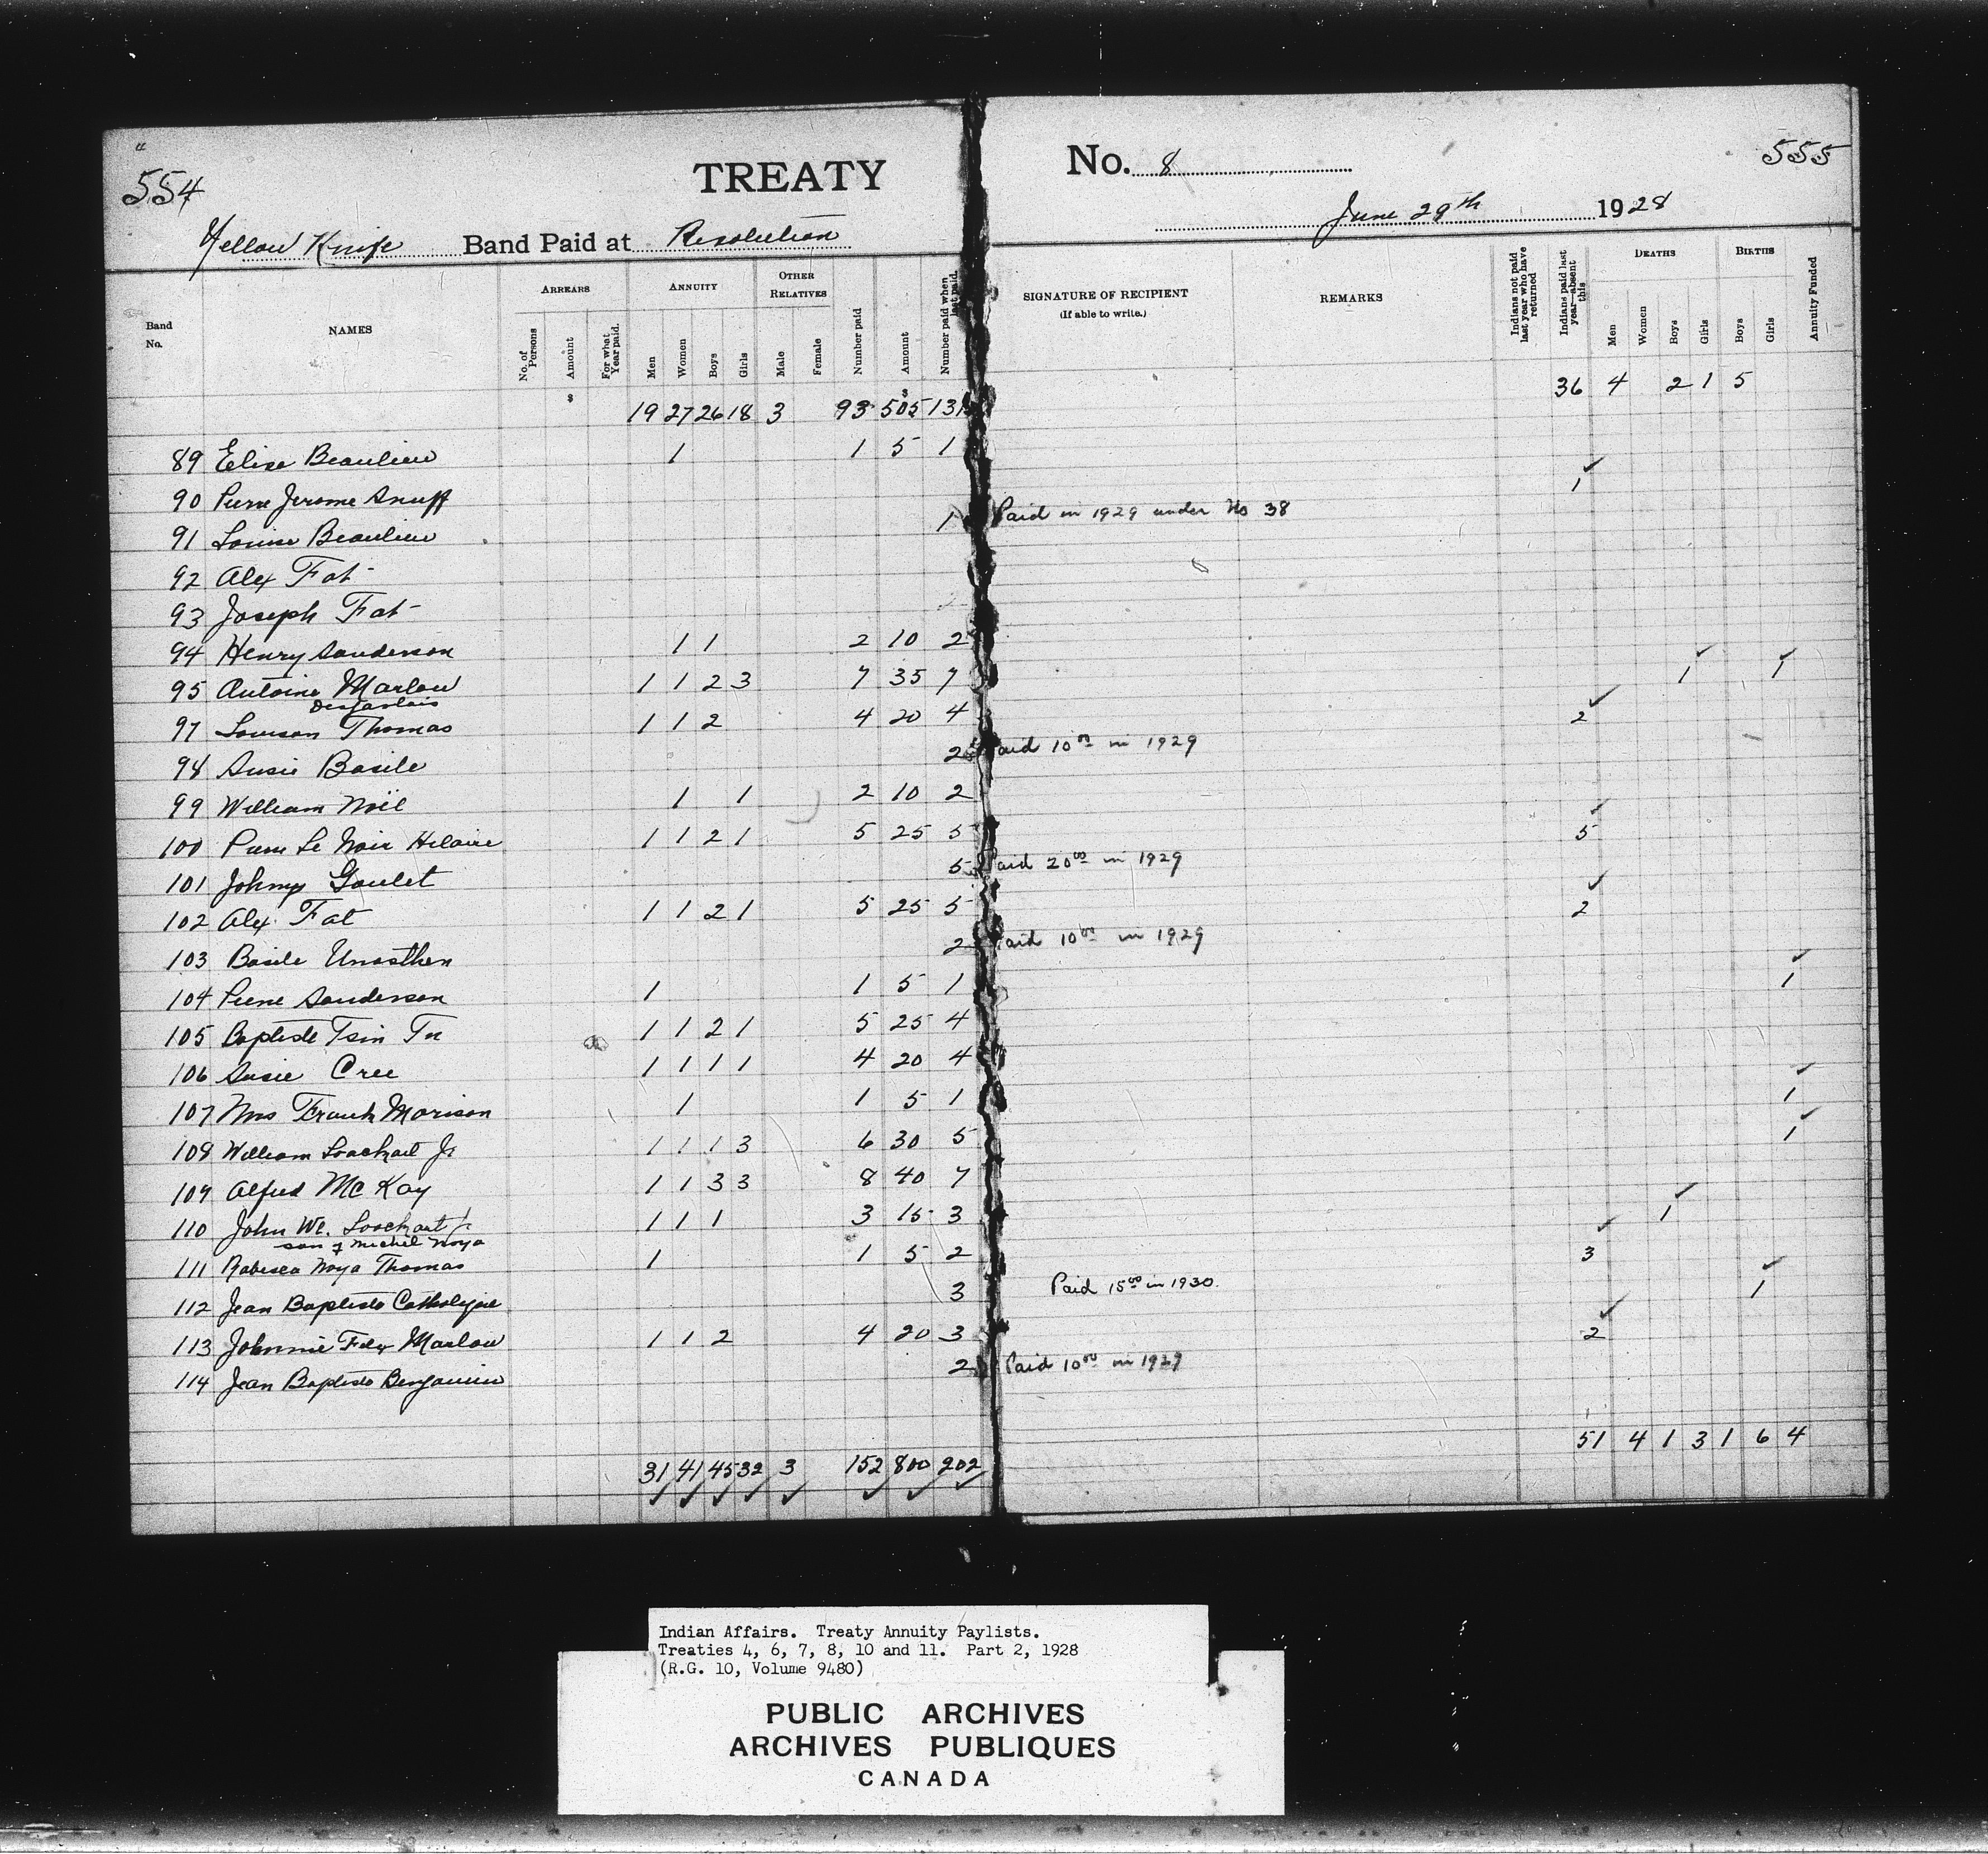 554
TREATY
Yellow Knife Band Paid at Resolution
Band No.
NAMES
ARREARS
No. of Persons
Amount
For what Year paid.
ANNUITY
Men
Women
Boys
Girls
OTHER RELATIVES
Male
Female
Number paid
Amount
Number paid when last paid.
$ $
19 27 26 18 3 93 505 131
89 Elise Beaulieu 1 1 5 1
90 Pierre Jerome Snuff
91 Louise Beaulieu 1
92 Alex Fat
93 Joseph Fat
94 Henry Sanderson 1 1 2 10 2
95 Antoine Marlow 1 1 2 3 7 35 7
Desjarlais
97 Louison Thomas 1 1 2 4 20 4
98 Susie Basile 2
99 William Noël 1 1 2 10 2
100 Pierre Le Noir Hilaire 1 1 2 1 5 25 5
101 Johny Goulet 5
102 Alex Fat 1 1 2 1 5 25 5
103 Basile Unasthen 2
104 Pierre Sanderson 1 1 5 1
105 Baptiste Tsin Tu 1 1 2 1 5 25 4
106 Susie Cree 1 1 1 1 4 20 4
107 Mrs Frank Morison 1 1 5 1
108 William Loachart Jr 1 1 1 3 6 30 5
109 Alfred McKay 1 1 3 3 8 40 7
110 John Wt. Loochart Jr 1 1 1 3 15 3
son of Michel Noya
111 Rabesca Noya Thomas 1 1 5 2
112 Jean Baptiste Catholique 3
113 Johnnie Fdex Marlow 1 1 2 4 20 3
114 Jean Baptiste Benjamin 2
31 41 45 32 3 152 800 202
✓ ✓ ✓ ✓ ✓ ✓ ✓ ✓
No. 8
555
June 29th 1928
SIGNATURE OF RECIPIENT
(If able to write.)
REMARKS
Indians not paid last year who have returned
Indians paid last year—absent this
DEATHS
Men
Women
Boys
Girls
BIRTHS
Boys
Girls
Annuity Funded
36 4 2 1 5
✓
1
Paid in 1929 under No 38
✓ ✓
1 1
✓
2
Paid 10 00 in 1929
✓
5
Paid 20 00 in 1929
✓
2
Paid 10 00 in 1929
✓
1
✓
1
✓
1
✓
1
✓
3
Paid 15 00 in 1930.
✓
1
✓
2
Paid 10 00 in 1929
51 4 1 3 1 6 4
Indian Affairs. Treaty Annuity Paylists.
Treaties 4, 6, 7, 8, 10 and 11. Part 2, 1928
(R.G. 10, Volume 9480)
PUBLIC ARCHIVES
ARCHIVES PUBLIQUES
CANADA